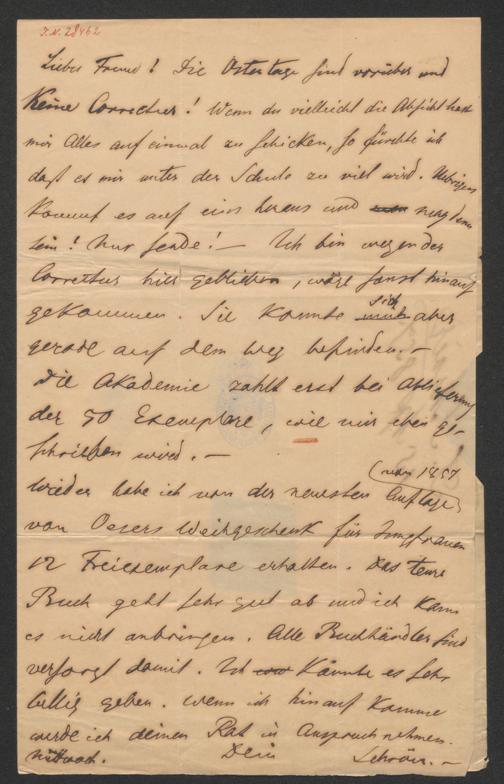 I.N. 28462
Lieber Freund! Die Ostertage sind vorüber und
keine Correctur! Wenn du vielleicht die Absicht hast
mir Alles auf einmal zu schicken, so fürchte ich
daß es mir unter der Schule zu viel wird. Uebrigens
kommt es auf eins heraus und mag denn
sein! Nur sende! — Ich bin wegen der
Correctur hier geblieben, wäre sonst hinauf
gekommen. Sie konnte sich aber
gerade auf dem Weg befinden. —
Die Akademie zahlt erst bei Ablieferung
der 50 Exemplare, wie mir eben ge-
schrieben wird. —
(von 1857
Wieder habe ich von der neuesten Auflage
von Oesers Weihgeschenk für Jungfrauen
12 Freiexemplare erhalten. Das teure
Buch geht sehr gut ab und ich kann
es nicht anbringen. Alle Buchhändler sind
versorgt damit. Ich könnte es sehr
billig geben. Wenn ich hinauf komme
werde ich deinen Rat in Anspruch nehmen.
Mittwoch. Dein Schröer. —